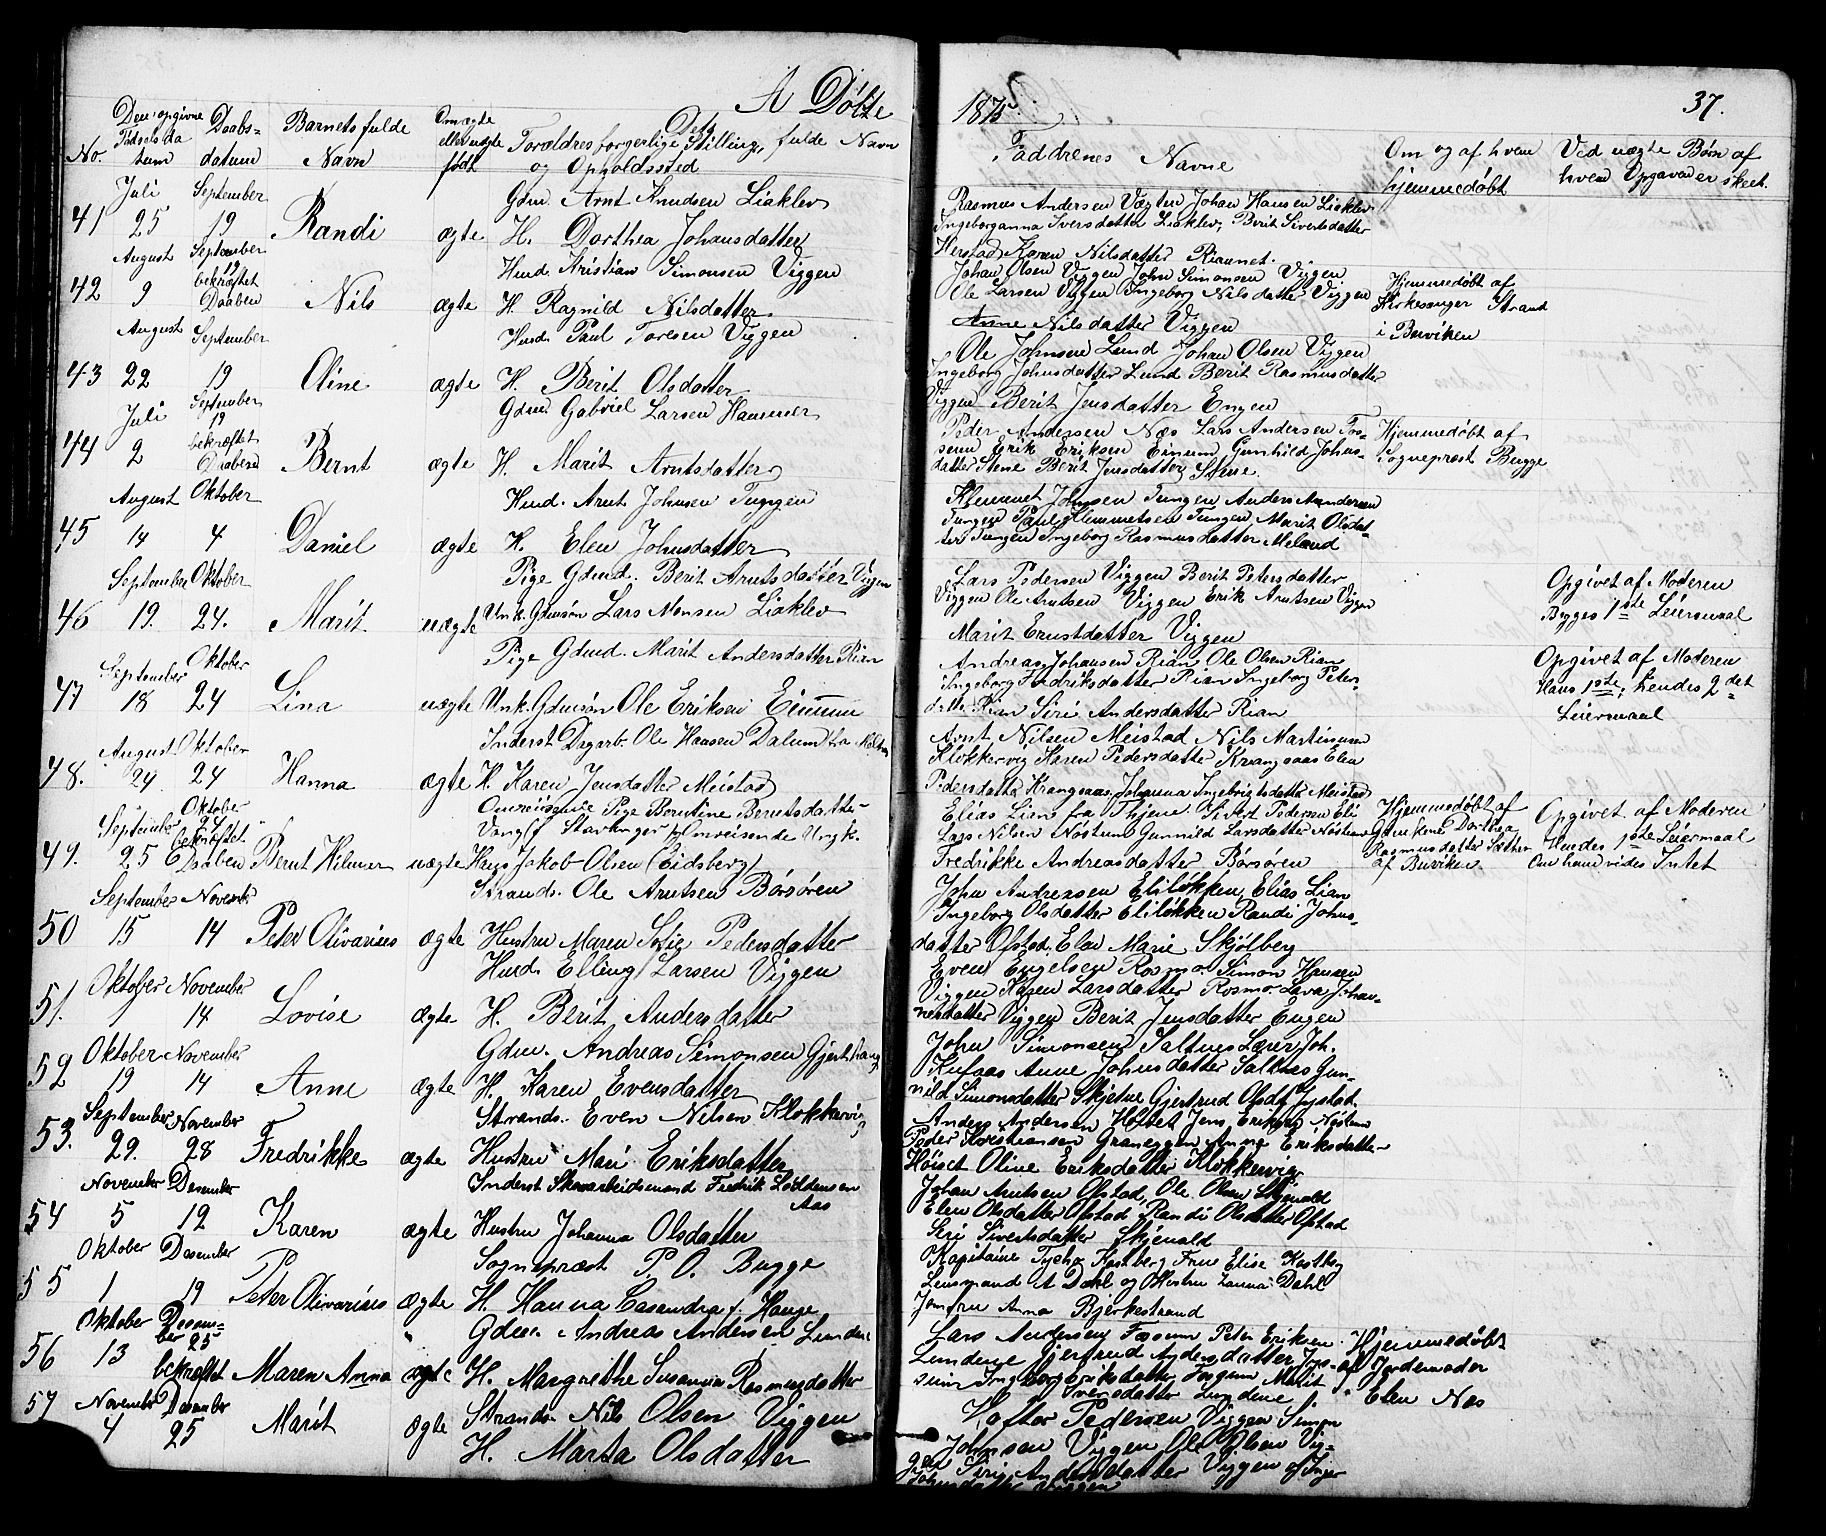 A Døbte
No.
Den opgivne
Fødselsda
tum
Daabs-
datum
Barnets fulde
Navn
Om ægte
eller uægte
født
Dets
Forældres borgerlige Stilling, fulde Navn
og Opholdssted
41
Juli
25
September
19
Randi
ægte
Gdm. Arnt Knudsen Liaklev
H. Dorthea Johansdatter
42
August
9
September
19
bekræftet
Daaben
Nils
ægte
Husd. Kristian Simonsen Viggen
H. Ragnild Nilsdatter
43
August
22
September
19
Oline
ægte
Husd. Paul Toresen Viggen
H. Berit Olsdatter
44
Juli
2
September
19
bekræftet
Daaben
Bernt
ægte
Gdm. Gabriel Larsen Hammer
H. Marit Arntsdatter
45
August
14
Oktober
4
Daniel
ægte
Husd. Arnt Johnsen Tungen
H. Elen Johnsdatter
46
September
19.
Oktober
24.
Marit
uægte
Pige Gdmd. Berit Arntsdatter Viggen
Unk. Gdmsøn Lars Monsen Liaklev
47
September
18
Oktober
24
Lina
uægte
Pige Gdmd. Marit Andersdatter Rian
Unk. Gdmsøn Ole Eriksen Einum
48.
August
24
Oktober
24
Hanna
ægte
Inderst Dagarb. Ole Hansen Dalum fra
H. Karen Jensdatter Meistad
49.
September
25
Oktober
24
bekræftet
Daaben
Bernt Hilmer
uægte
Omreisende Pige Berntine Berntsdatter
Stavanger Omreisende Ungk.
Hans Jakob Olsen (Eidsberg)
50
September
15
Novemb.
14
Peter Olivarius
ægte
Strands. Ole Arntsen Børsøren
Hustru Maren Sofie Pedersdatter
51.
Oktober
1
November
14
Lovise
ægte
Husd. Elling Larsen Viggen
H. Berit Andersdatter
52
Oktober
19
November
14
Anne
ægte
Gdm. Andreas Simonsen
H. Karen Evensdatter
53.
September
29.
November
28
Fredrikke
ægte
Strands. Even Nilsen Klokkervig
Hustru Mari Eriksdatter
54
November
5
Desember
12
Karen
ægte
Inderst Skovarbeidsmand Fredrik
Aas
Hustru Johanna Olsdatter
55
Oktober
1
Desember
19
Peter Olivarius
ægte
Sognepræst P. O. Bugge
H. Hanna Casandra f. Hauge
56
Oktober
13
Desem-
ber
25
bekræftet
Maren Anna
ægte
Gdm. Andreas Andersen Lundene
H. Margrethe Susanna Rasmusdatter
57
November
4
Desember
25
Marit
ægte
Strands. Nils Olsen Viggen
H. Marta Olsdatter
1875.
37.
Faddrenes Navne
Om og af hvem
hjemmedøbt
Ved uægte Børn af
hvem Opgaven er skeet.
Rasmus Andersen Vægten Johan Hansen Liaklev
Ingeborganna Iversdatter Liaklev, Berit Sivertsdatter
Herstad Karen Nilsdatter Rianet.
Johan Olsen Viggen John Simonsen Viggen
Ole Larsen Viggen Ingeborg Nilsdatter Viggen
Anne Nilsdatter Viggen
Hjemmedøbt af
Kirkesanger Strand
i Buviken
Ole Johnsen Lund Johan Olsen Viggen
Ingeborg Johnsdatter Lund Berit Rasmusdatter
Viggen Berit Jensdatter Engen
Peder Andersen Næs Lars Andersen Fos-
sum Erik Eriksen Einum Gunhild Johns-
datter Stene Berit Jensdatter Stene.
Hjemmedøbt af
Sognepræst Bugge
Klemmet Johnsen Tungen Anders Andersen
Tungen Paul Klemmetsen Tungen Marit Olsdat-
ter Tungen Ingeborg Rasmusdatter Meland
Lars Pedersen Viggen Berit Petersdatter
Viggen Ole Arntsen Viggen Erik Arntsen Viggen
Marit Ernstdatter Viggen
Opgivet af Moderen
Begges 1ste Leiermaal
Andreas Johansen Rian Ole Olsen Rian
Ingeborg Fredriksdatter Rian Ingeborg Peters-
datter Rian Siri Andersdatter Rian
Opgivet af Moderen
Hans 1ste, hendes 2det
Leiermaal
Arnt Nilsen Meistad Nils Martinusen
Klokkervig Karen Pedersdatter Krangsaas Elen
Pedersdatter Krangsaas, Johanna Ingebrigtsdatter Meistad
Elias Lian fra Sivert Pedersen Eli
Lars Nilsen Nøstum Gunnild Larsdatter Nøstum
Fredrikke Andreasdatter Børsøren
Hjemmedøbt af
Gdm.enke Dorthea
Rasmusdatter Sæther
af Buviken.
Opgivet af Moderen
Hendes 1ste Leiermaal
Om ham vides Intet
John Andreasen Eliløkken, Elias Lian
Ingeborg Olsdatter Eliløkken Randi Johns-
datter Ofstad, Elen Marie Skjølberg
Even Engelsen Rosmo Simon Hansen
Viggen Karen Larsdatter Rosmo Lava Johan-
nesdatter Viggen Berit Jensdatter Engen
John Simonsen Saltnes Lærer Joh.
Anne Johnsdatter Saltnes Gun-
nild Simonsdatter Skjetne Gjertrud Olsdt Jystad.
Anders Andersen Holtet Jens Eriksen Nøstum
Peder Kristiansen Graneggen Anne Eriksdatter
Høiset Oline Eriksdatter Klokkervig
Johan Arntsen Ofstad, Ole Olsen Skjenald
Elen Olsdatter Ofstad Randi Olsdatter Ofstad
Siri Sivertsdatter Skjenald
Kapitaine Tycho Frue Elise
Lensmand A Dahl og Hustru Dahl
Jomfru Anna Bjerkestrand
Lars Andersen Fossum Peter Eriksen
Lundene Gjertrud Andersdatter Fos-
sum Ingeborg Eriksdatter Fossum Marit
Iversdatter Lundene
Hjemmedøbt
af Jordemoder
Elen Næs
Hoftor Pedersen Viggen Simon
Johnsen Viggen Ole Olsen Vig-
gen Siri Andersdatter Viggen og Inger
Johnsdatter Viggen